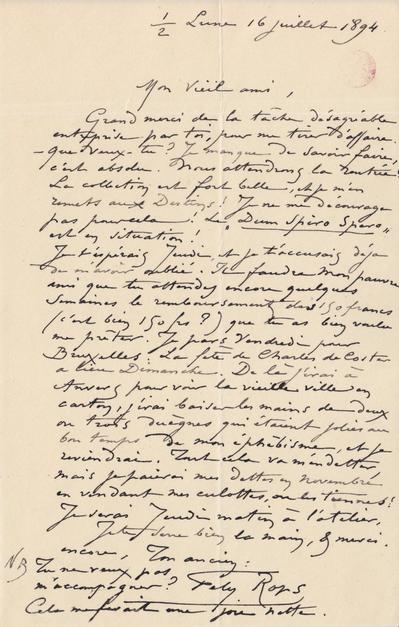 1/2 Lune 16 juillet 1894
Mon vieil ami,
Grand merci de la tâche désagréable
entreprise par toi, pour me tirer d'affaire.
- que veux-tu ? Je manque de savoir faire,
c'est absolu. Nous attendrons la rentrée !
La collection est fort belle, et je m'en
remets aux Destins ! Je ne me décourage
pas pour cela ! Le "Dum Spiro Spero"
est en situation !
Je t'espérais Jeudi, et je t'accusais déjà
de m'avoir oublié. Il faudra mon pauvre
ami que tu attendes encore quelques
semaines le remboursement des 150 francs
(c'est bien 150 frs ?) que tu as bien voulu
me prêter. Je pars Vendredi pour
Bruxelles. La fête de Charles de Coster
a lieu Dimanche. De là j'irai à
Anvers pour voir la vieille ville en
carton, j'irai baiser les mains de deux
ou trois duègnes qui étaient jolies au
bon temps de mon éphébisme, et je
reviendrai. Tout cela va m'endetter,
mais je paierai mes dettes en novembre
en vendant mes culottes, ou les tiennes !
Je serai Jeudi matin à l'atelier,
Je te serre bien la main, & merci
encore, Ton ancien :
NB Tu ne veux pas
m'accompagner ? Fély Rops
Cela me ferait une joie nette.